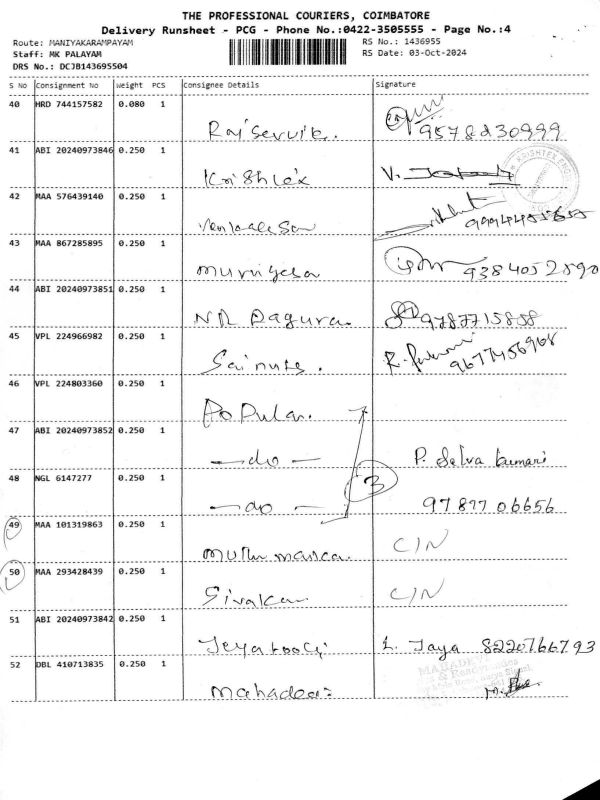 THE PROFESSIONAL COURIERS, COIMBATORE
Delivery Runsheet - PCG - Phone No.:0422-3505555 - Page No.:4
Route: MANIYAKARAMPAYAM RS No.: 1436955
Staff: MK PALAYAM RS Date: 03-Oct-2024
DRS No.: DCJB143695504
S No Consignment No Weight PCS Consignee Details Signature
40 HRD 744157582 0.080 1
9578230999
41 ABI 20240973846 0.250 1
Krishtex V.
42 MAA 576439140 0.250 1
43 MAA 867285895 0.250 1
9384052590
44 ABI 20240973851 0.250 1
NR 9787715858
45 VPL 224966982 0.250 1
R. 9677456968
46 VPL 224803360 0.250 1
Popular.
47 ABI 20240973852 0.250 1
— do — P. Selva kumari
48 NGL 6147277 0.250 1 3
— do — 9787706656
49 MAA 101319863 0.250 1
C/N
50 MAA 293428439 0.250 1
C/N
51 ABI 20240973842 0.250 1
L. Jaya 8220766793
52 DBL 410713835 0.250 1